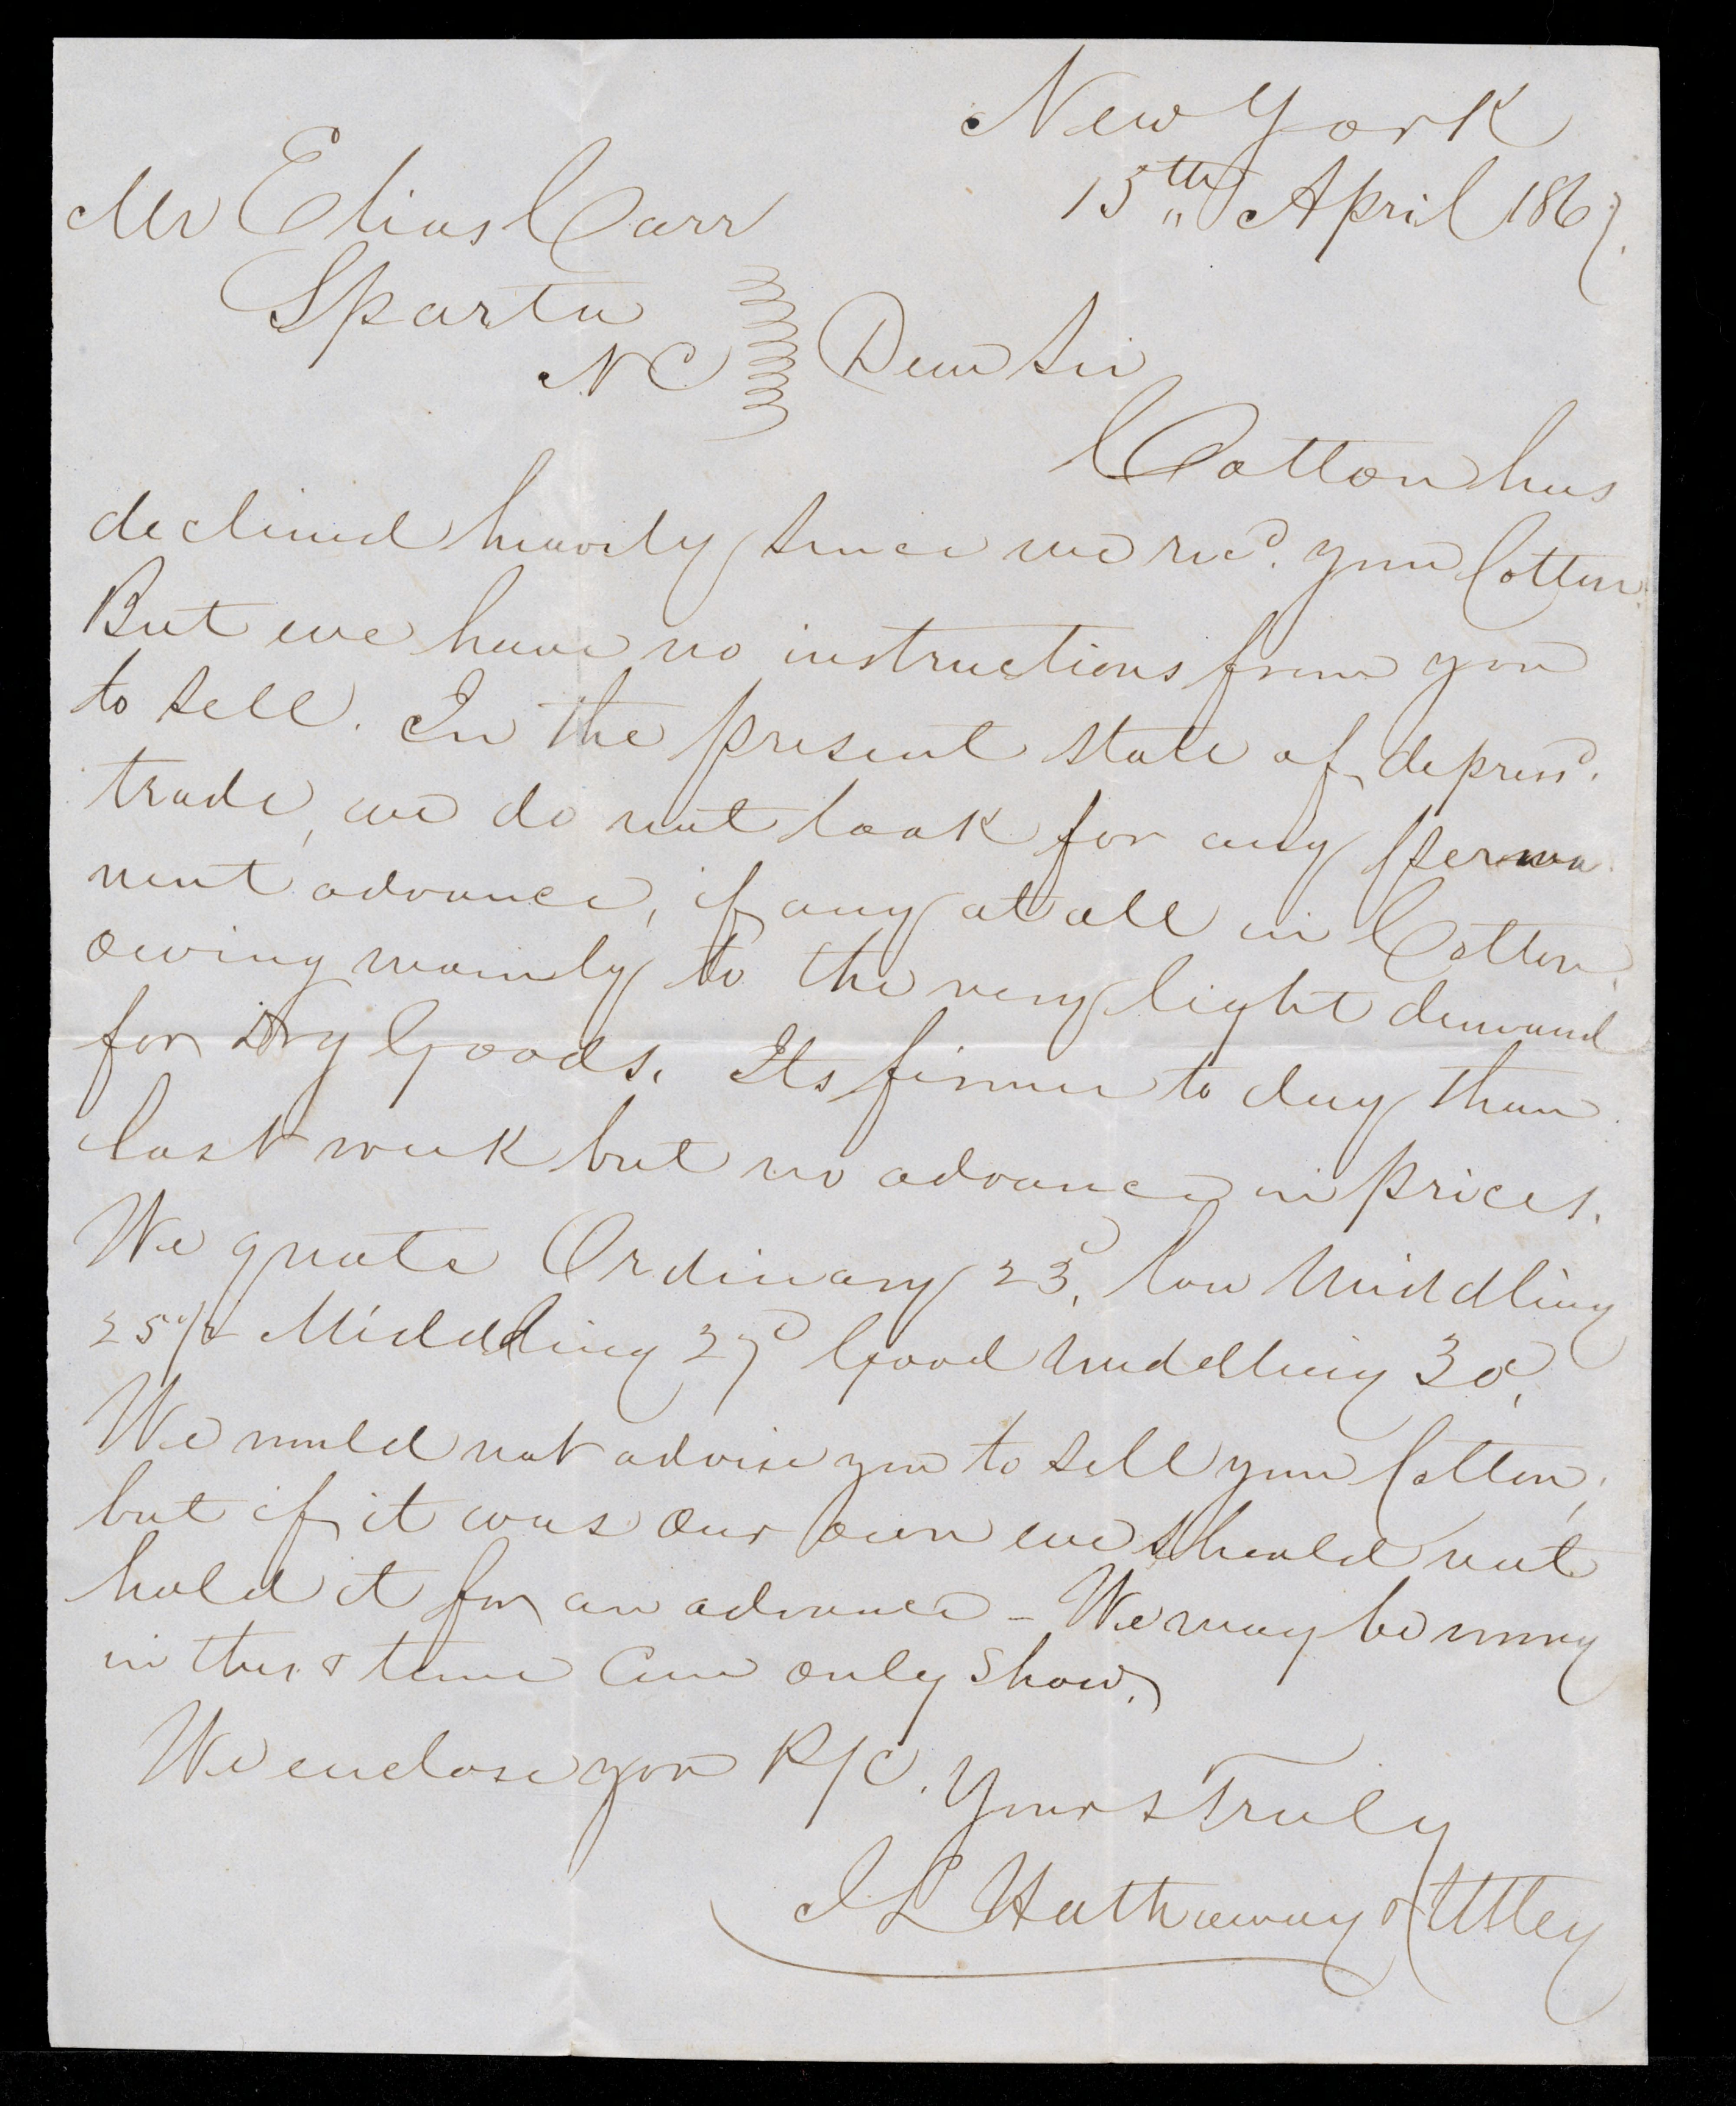 New York
15th April 1867.
Mr Elias Carr
Sparta
NC
Dear Sir
Cotton has
declined heavily since we recd. your Cotton.
But we have no instructions from you
to sell. In the present state of depressd.
trade, we do not look for any perma
nent advance, if any at all in Cotton,
owing mainly to the very light demand
for Dry Goods. Its firmer to day than
last week but no advance in prices.
We quote Ordinary 23c, low Middling
25 1/2 Middling 27c Good Middling 30c,
We would not advise you to sell your Cotton,
but if it was our own we should not
hold it for an advance - We may be wrong
in this & time can only show.
We enclose you R/C. Yours Truly
J L Hathaway & Utley